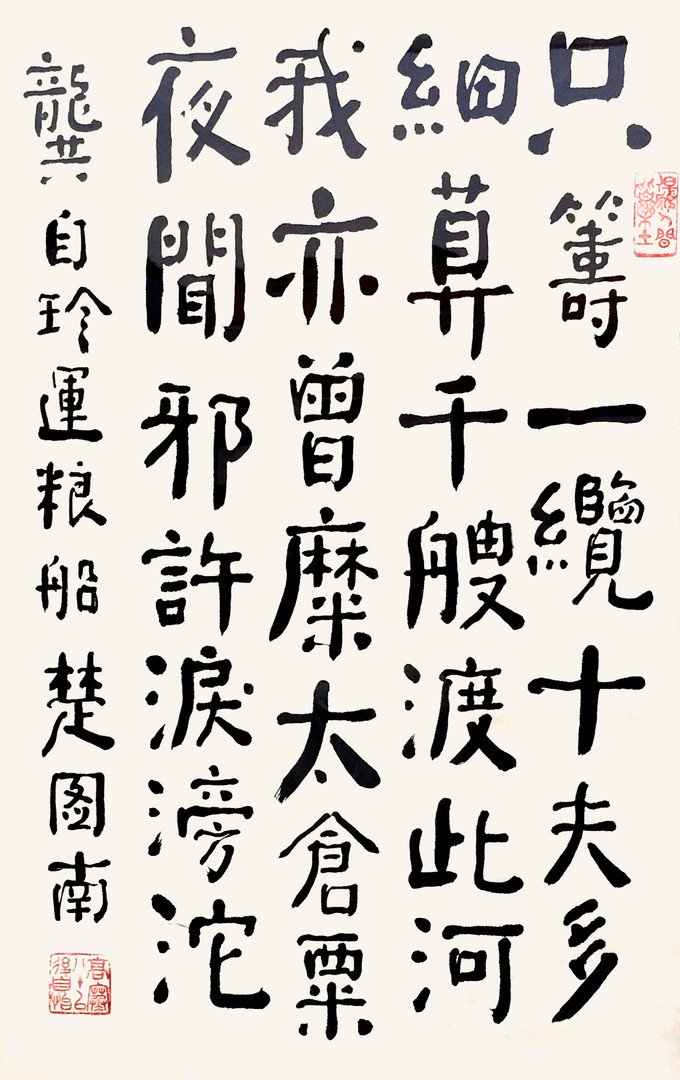 只籌一纜十夫多
細算千艘渡此河
我亦曾糜太倉粟
夜聞邪許淚滂沱
龔自珍運粮船楚图南